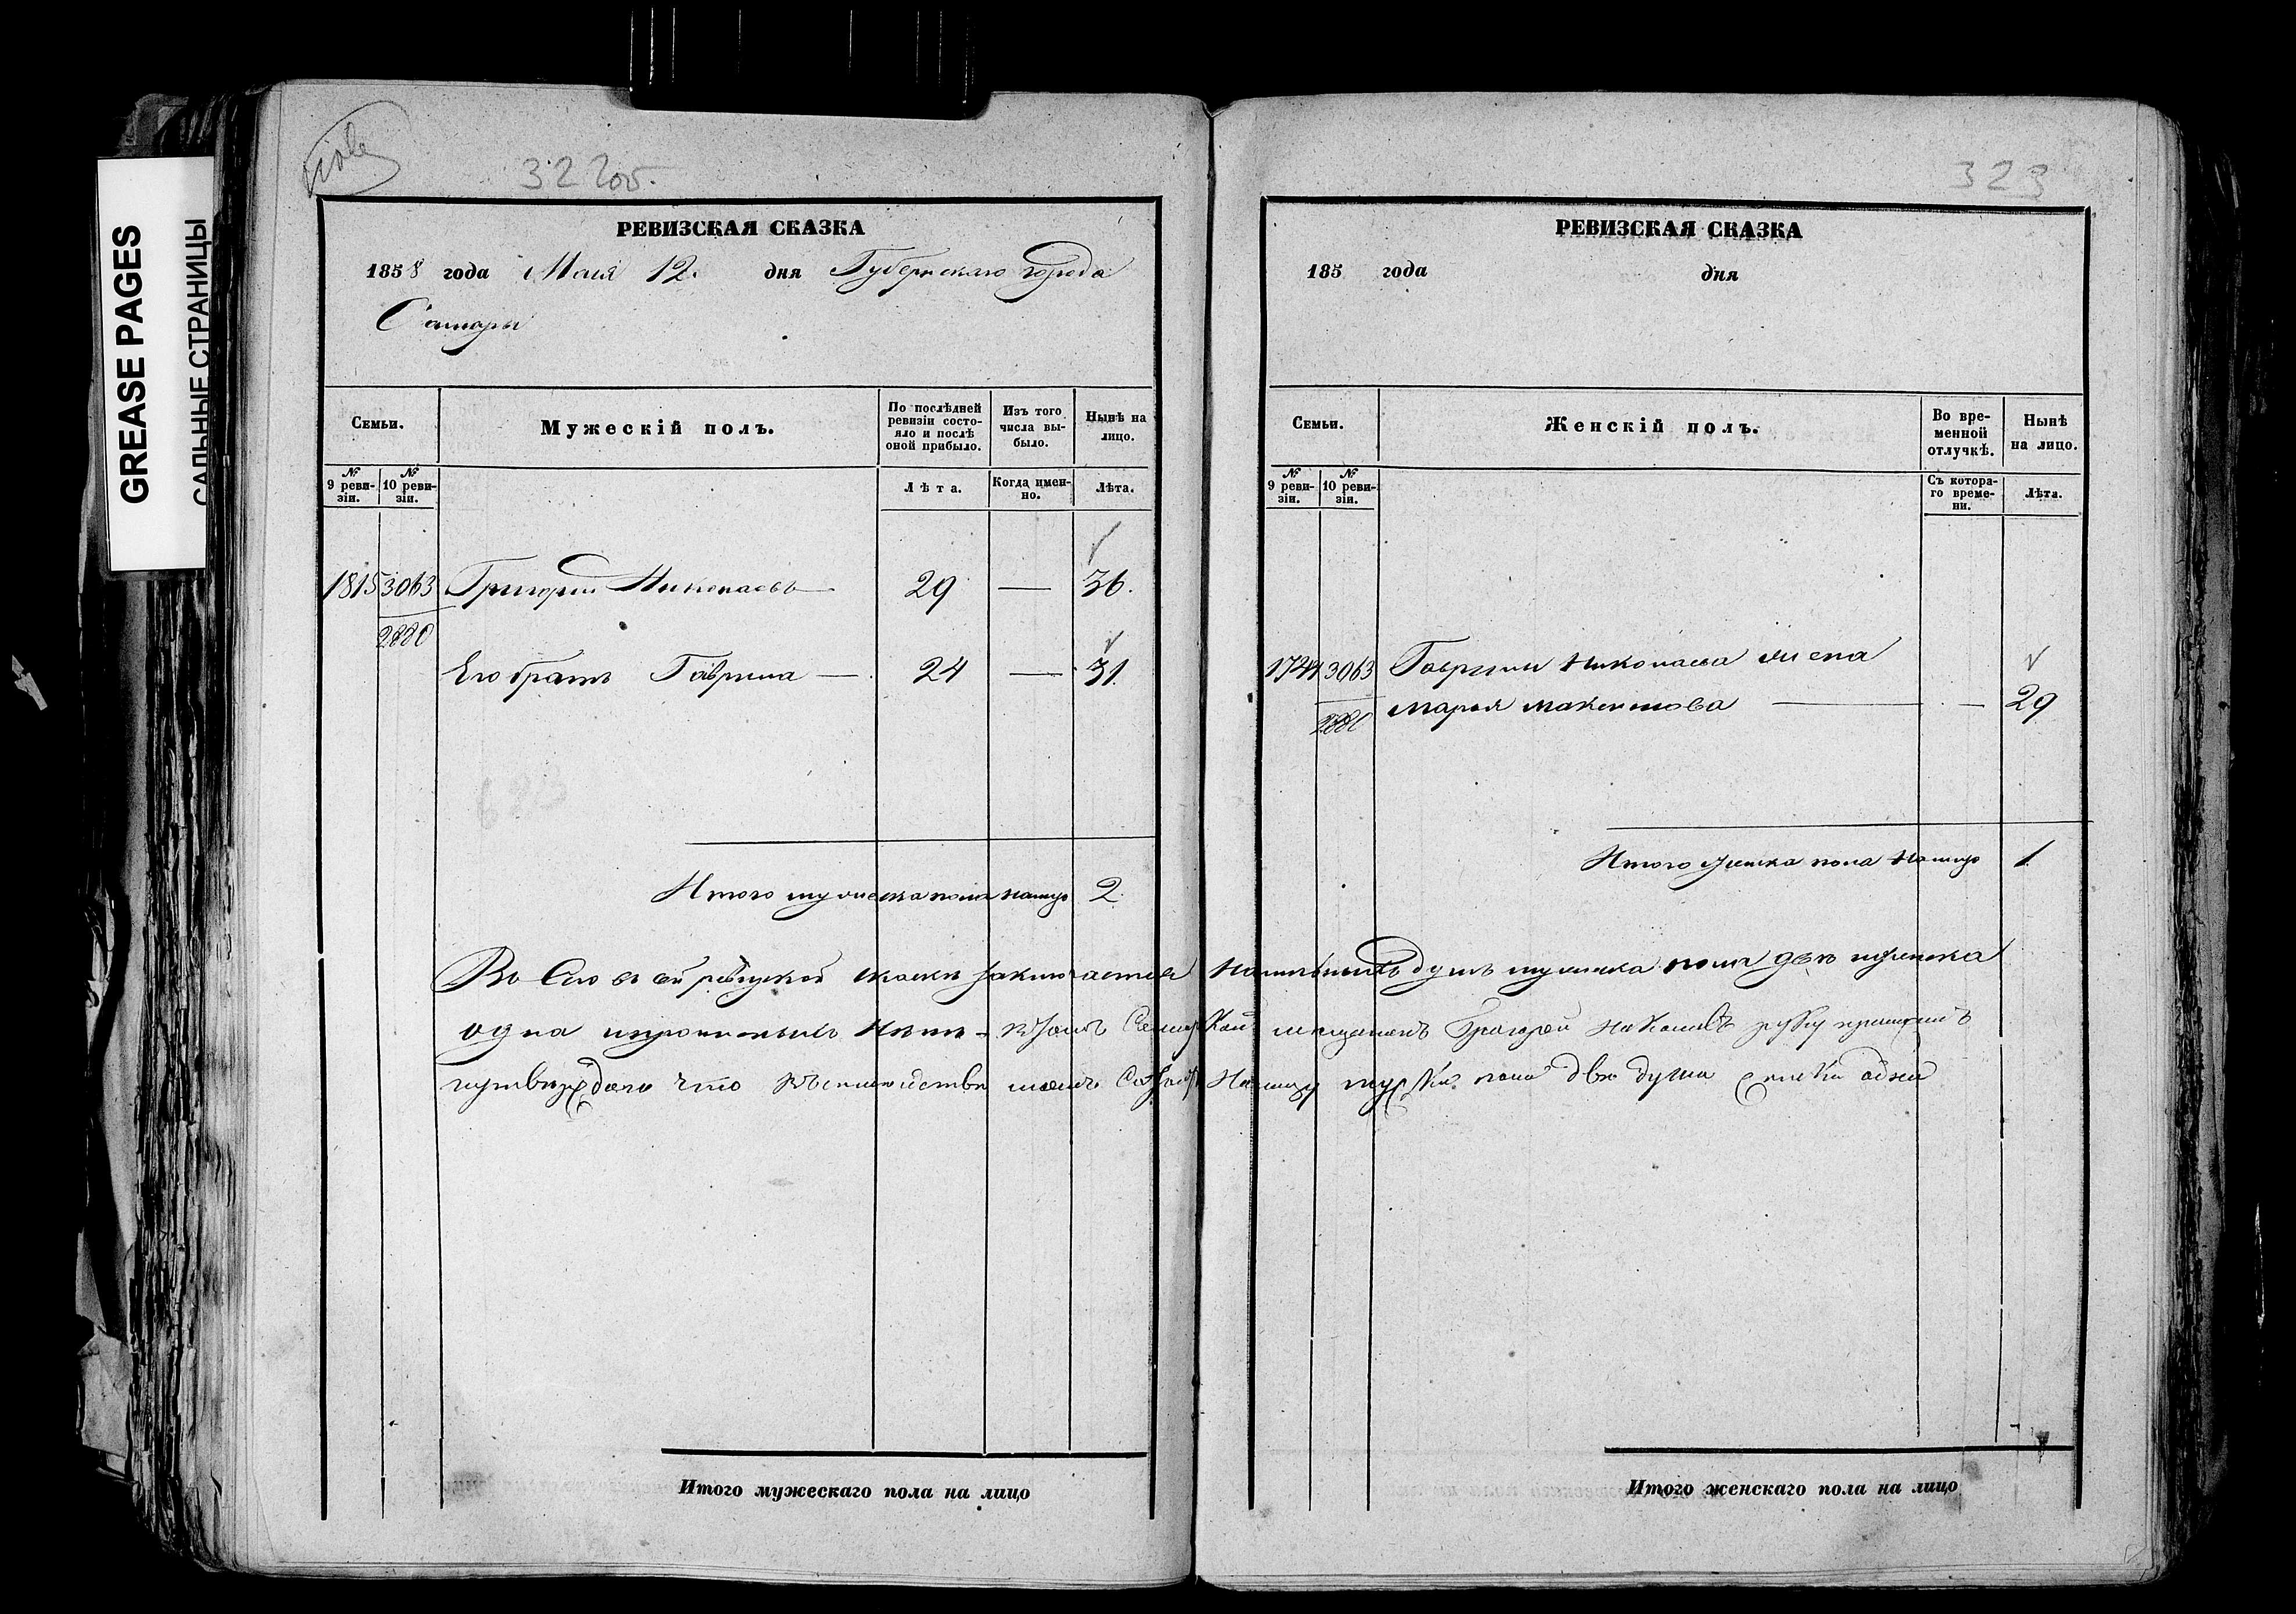 GREASE PAGES
САЛЬНЫЕ СТРАНИЦЫ
322об.
РЕВИЗСКАЯ СКАЗКА
1858 года Мая 12. дня Губернскаго города
Самары
Семьи.
Мужескій полъ.
По послѣдней ревизіи состояло и послѣ оной прибыло.
Изъ того числа выбыло.
Нынѣ на лицо.
№ 9 ревизіи.
№ 10 ревизіи.
Лѣта.
Когда именно.
Лѣта.
1815 3063 Григорій Николаевъ — 29 — 36.
2880
Его братъ Гаврила — 24 — 31.
623
Итого мужеска пола налицо 2.
323
РЕВИЗСКАЯ СКАЗКА
185 года дня
Семьи.
Женскій полъ.
Во временной отлучкѣ.
Нынѣ на лицо.
№ 9 ревизіи.
№ 10 ревизіи.
Съ котораго времени.
Лѣта.
1744 3063 Гаврилы Николаева жена
2880 Марья Максимова — — 29
Итого женска пола налицо 1.
Всего въ сей ревизской сказке заключается наличныхъ душъ мужеска пола две женска
одна
что мужска пола две души одна
Итого мужескаго пола на лицо
Итого женскаго пола на лицо